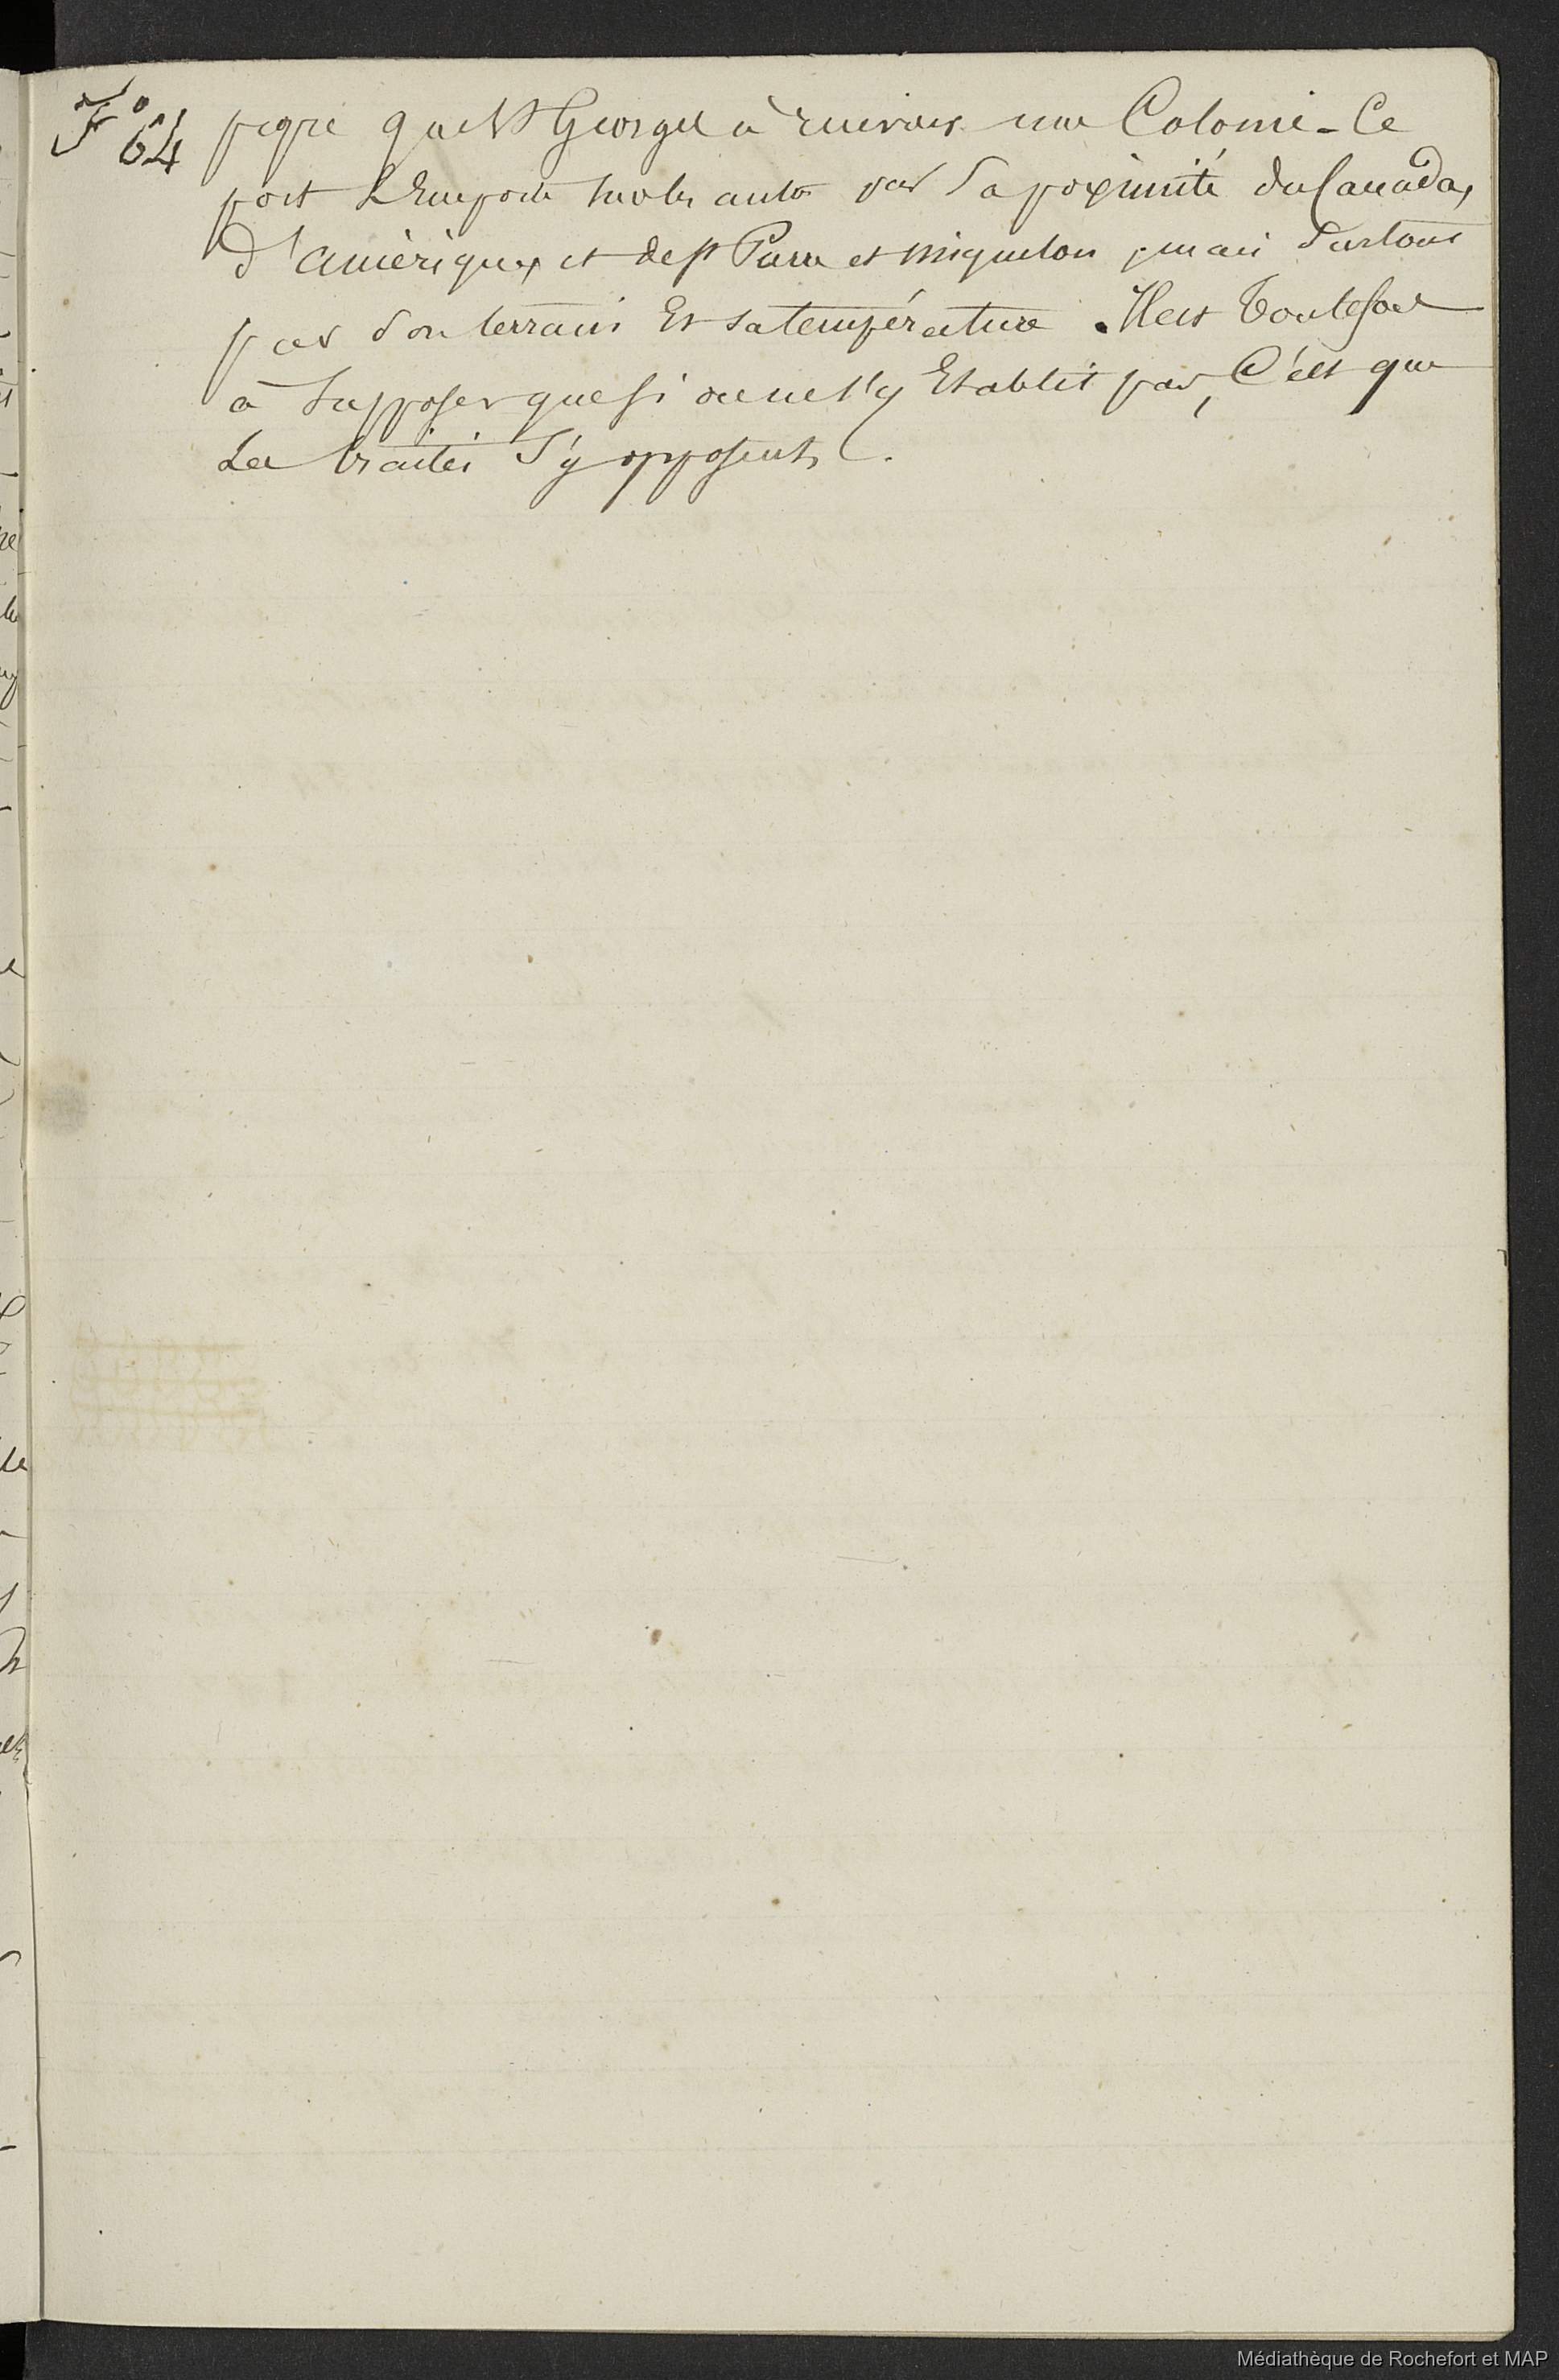 F° 64
propre que St George à recevoir une Colonie - Ce
port L'Emporte sur les autres par Sa poximité du Canada,
d'amérique, et de St Pierre et miquelon, mais Surtout
par Son terrain Et sa température. Il est toutefois
à Supposer que si on ne s'y Etablit pas, C'est que
Les traités S'y opposent.
Médiathèque de Rochefort et MAP